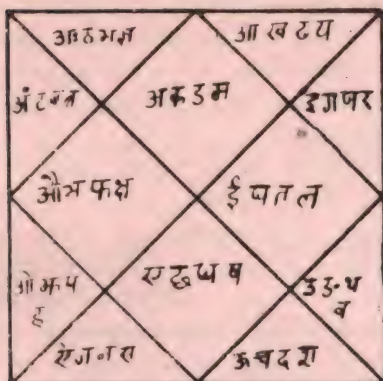 अःठभज्ञ आ ख ढ य
अंटबत्र अकडम इगणर
औञफक्ष ईघतल
ओ झप
ह एछधष उङथ
व
ऐजनस ऊचदश